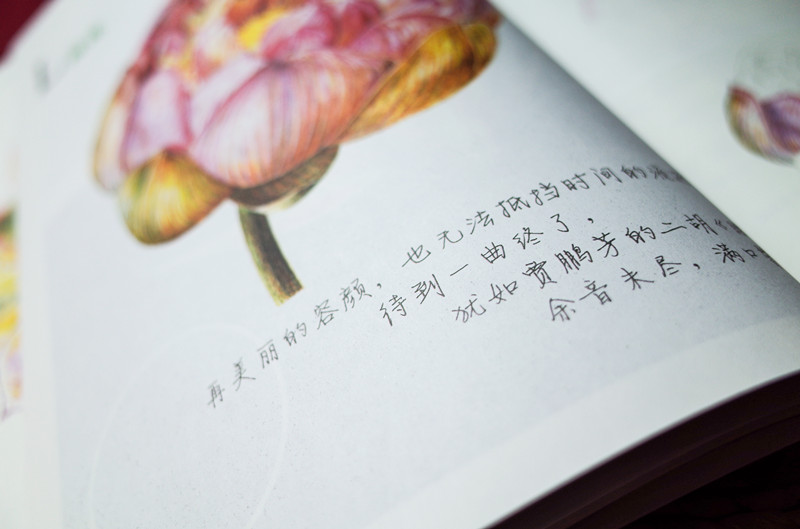 再美丽的容颜，也无法抵挡时间的
待到一曲终了，
犹如贾鹏芳的二胡《
余音未尽，满口